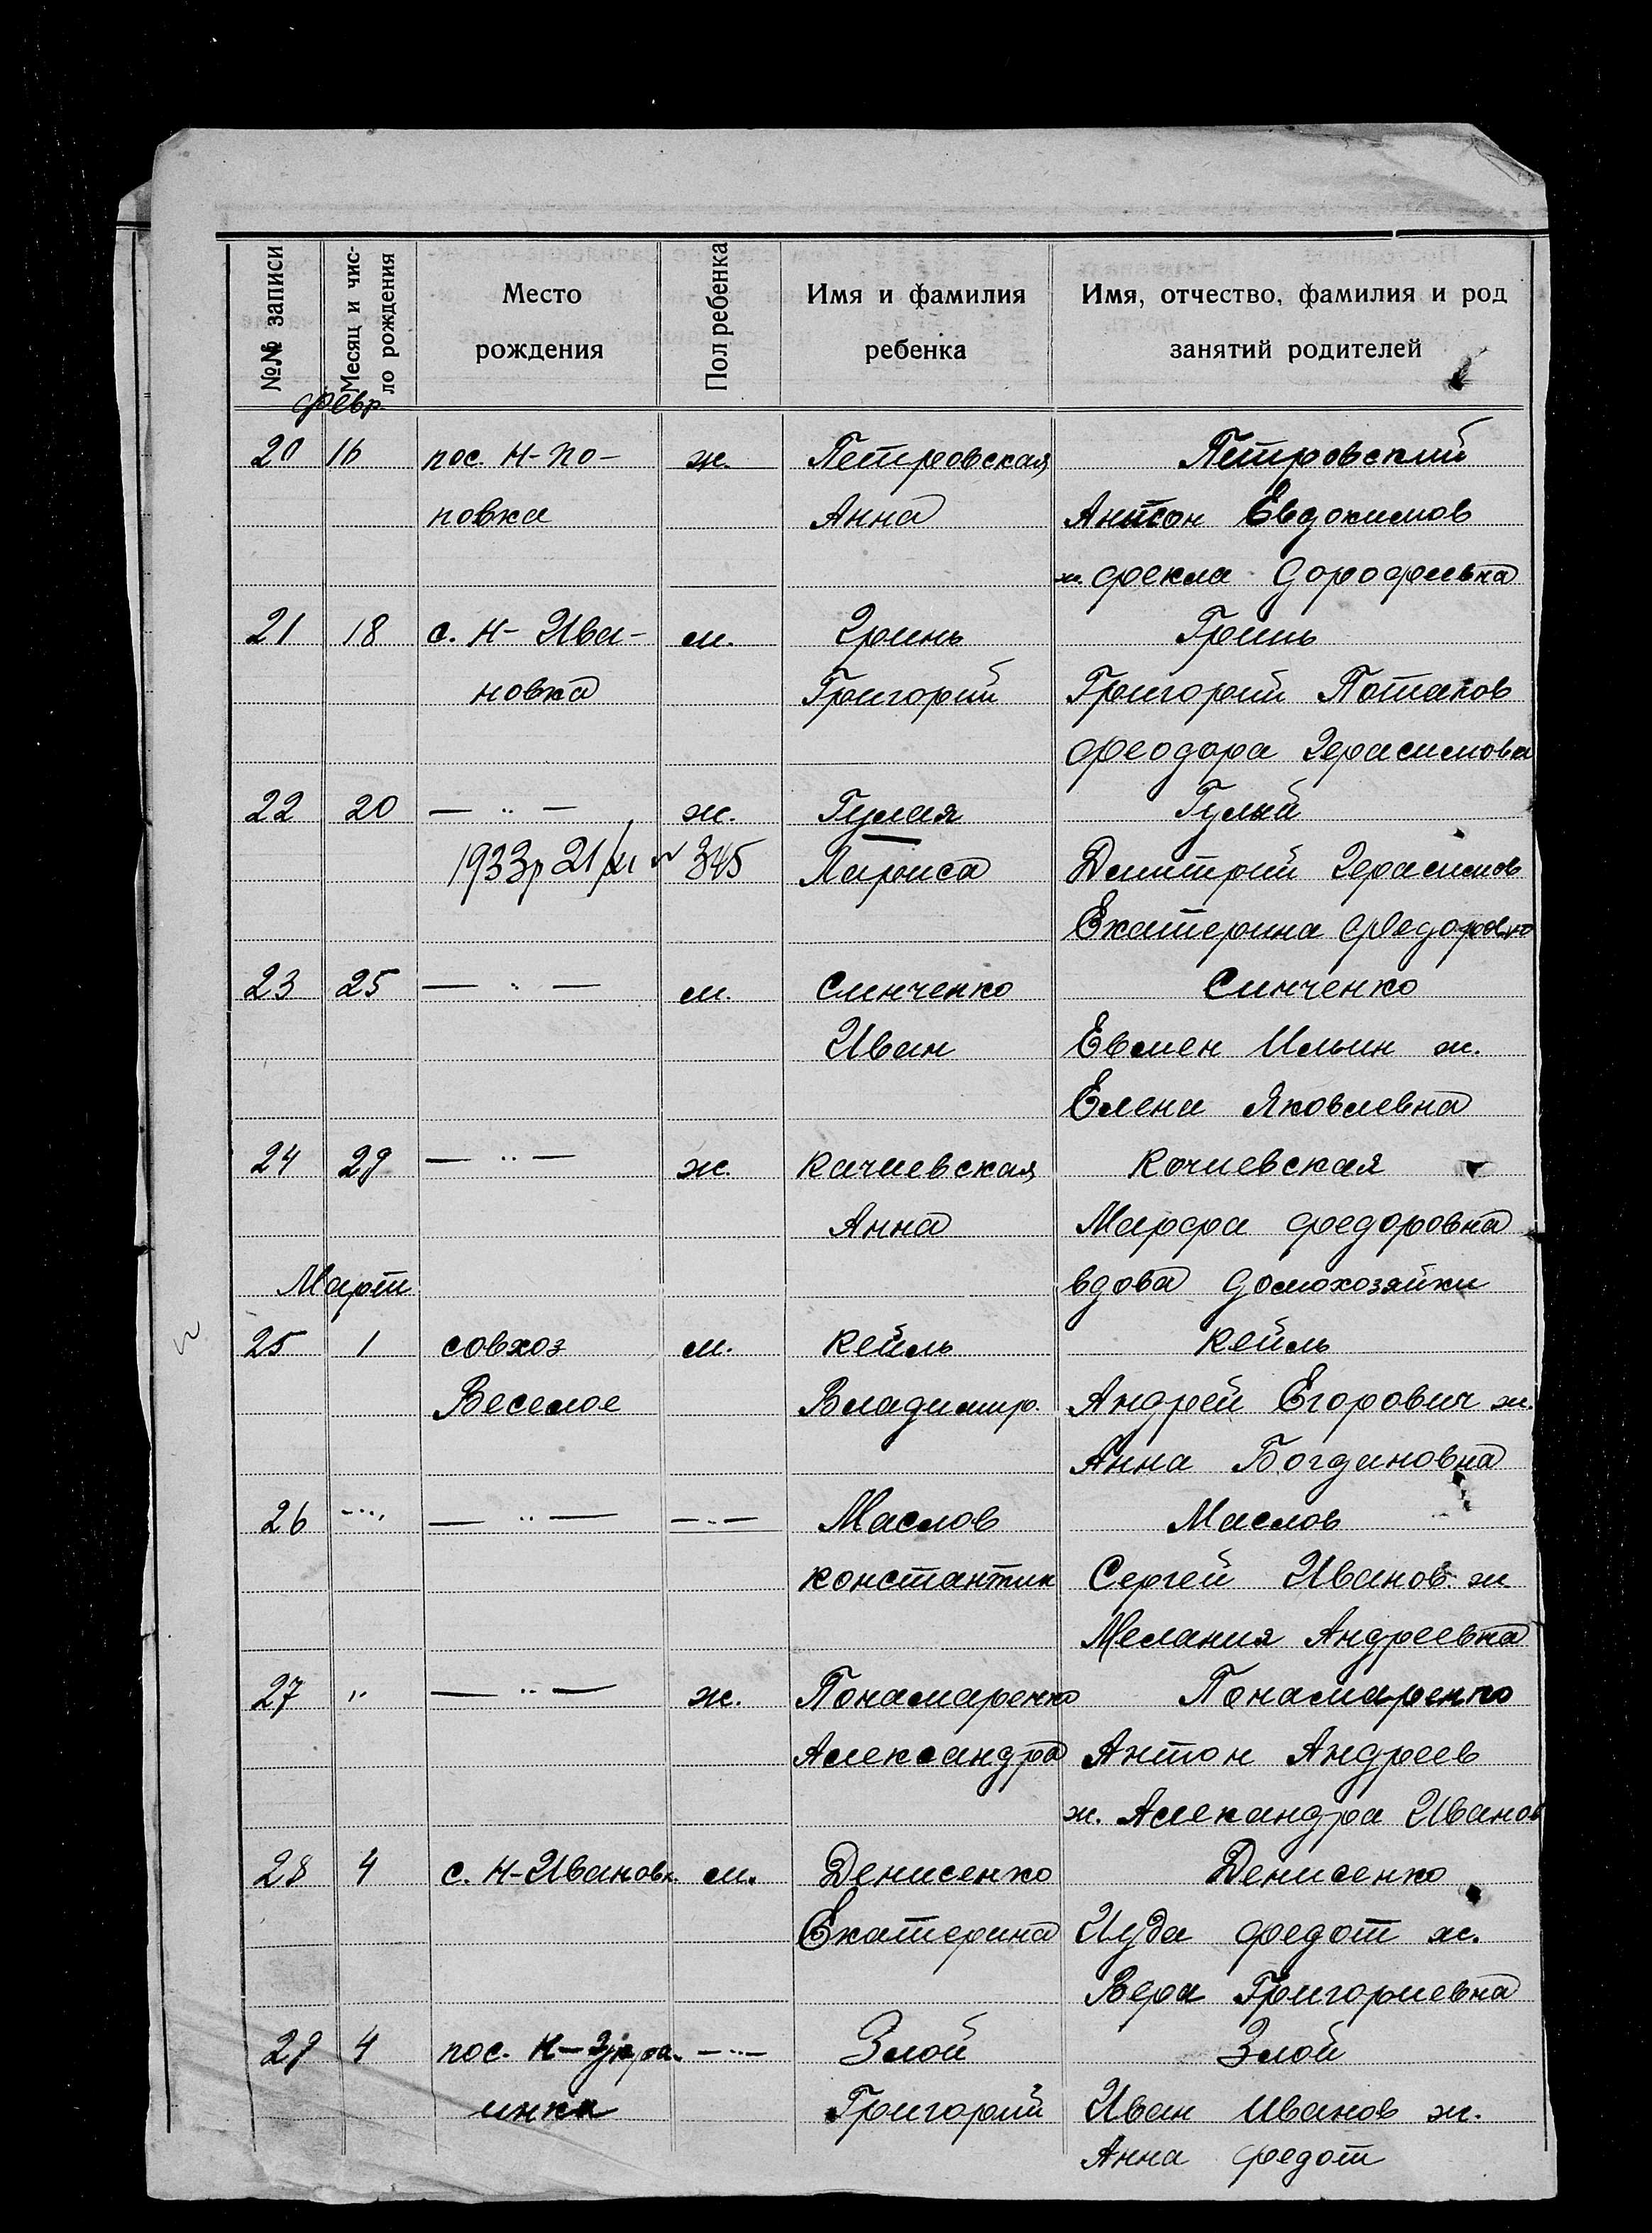 №№ записи
Месяц и чис-
ло рождения
Место
рождения
Пол ребенка
Имя и фамилия
ребенка
Имя, отчество, фамилия и род
занятий родителей
Февр.
20 16 пос. Н-По- ж. Петровская Петровский
повка Анна Антон Евдокимов
ж. Фекла Дорофеивна
21 18 с. Н-Ива- м. Гринь Гринь
новка Григорий Григорий Потапов
Феодора Герасимова
22 20 — " — ж. Гулая Гулый
1933р 21/XI № 345 Лариса Дмитрий Герасимов
Екатерина Федоровна
23 25 — " — м. Синченко Синченко
Иван Евмен Ильин ж.
Елена Яковлевна
24 29 — " — ж. Качиевская Кочиевская
Анна Марфа Федоровна
Март вдова домохозяйки
25 1 совхоз м. Кейль Кейль
Веселое Владимир. Андрей Егорович ж.
Анна Богдановна
26 -"- — " — — " — Маслов Маслов
Константин Сергей Иванов ж
Мелания Андреевна
27 " — " — ж. Понамаренко Понамаренко
Александра Антон Андреев
ж. Алекандра Иванов
28 4 с. Н-Ивановк. м. Денисенко Денисенко
Екатерина Иуда Федот ж.
Вера Григориевна
29 4 пос. Н- — " — Злой Злой
инка Григорий Иван Иванов ж.
Анна Федот